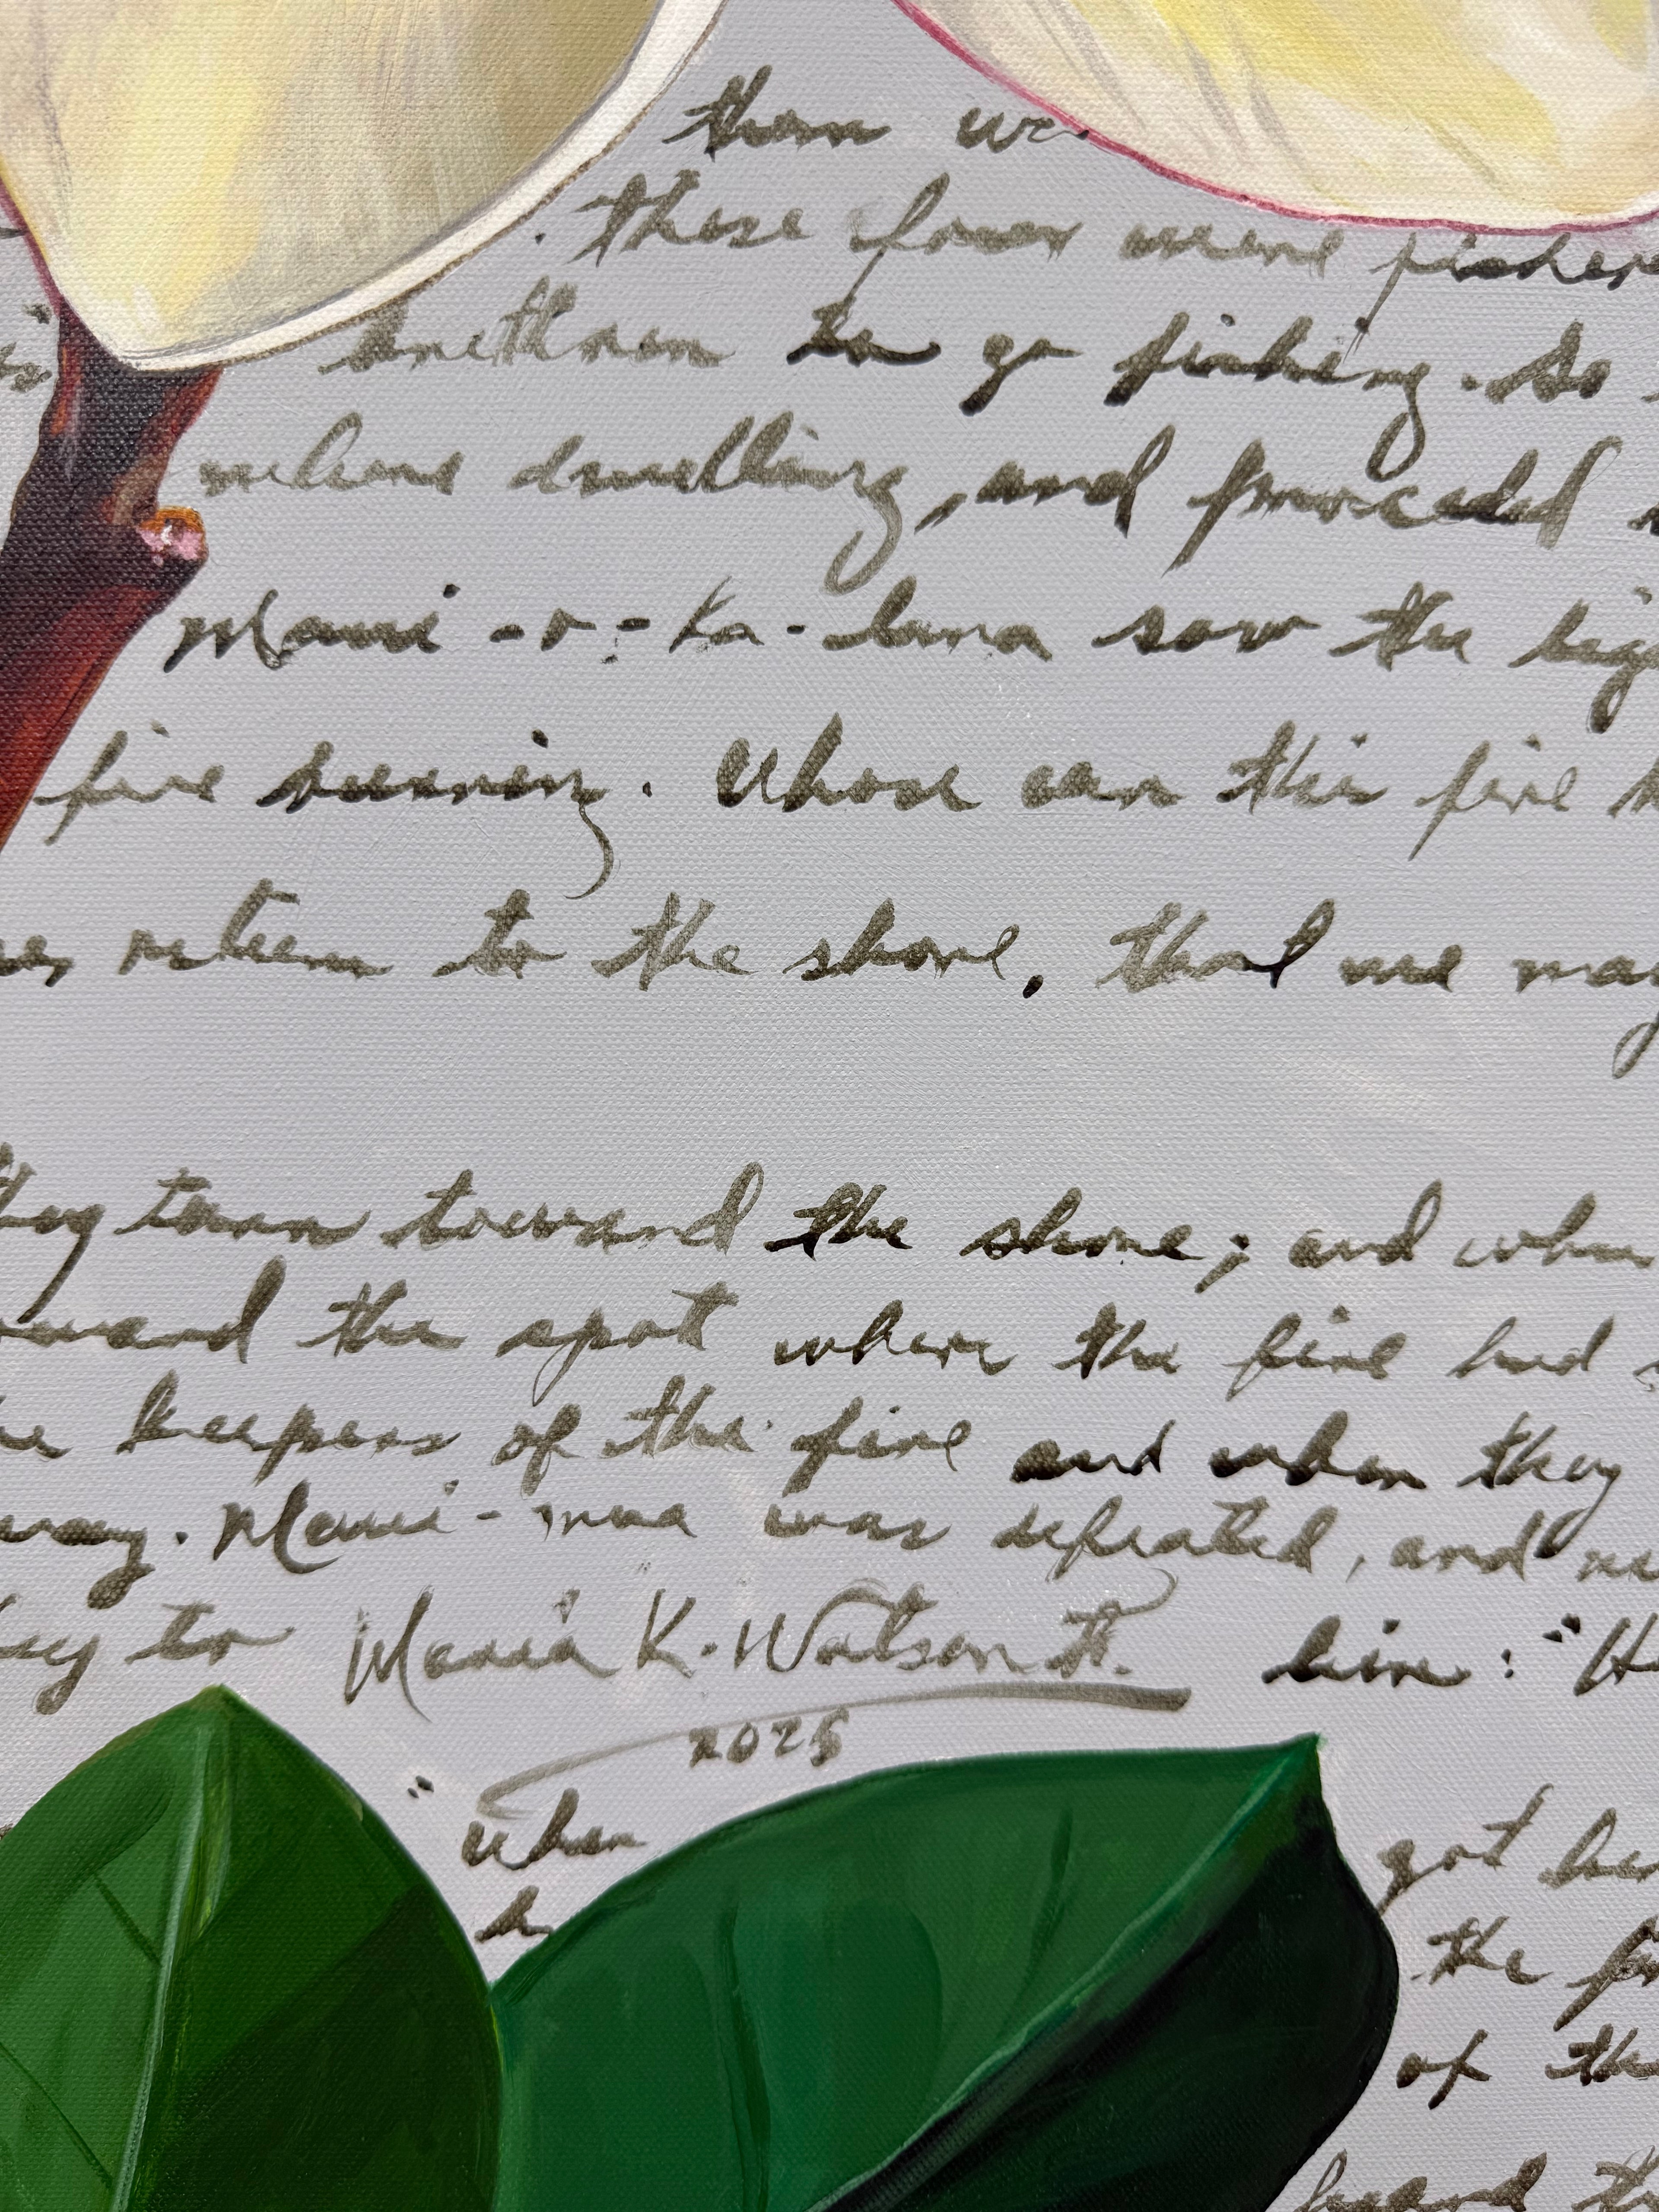 them we
. these four were fishere
brethren to go fishing. So
whose dwelling, and proceeded
Maui-o-ka-lana saw the lig
fire burning. Whose can this fire b
us return to the shore, that we may
they turn toward the shore; and when
toward the spot where the fire had
the keepers of the fire and when they
away. Maui-mua was defeated, and
to
Maria K. Watson II.
him: "H
2025
"When got
the
of the